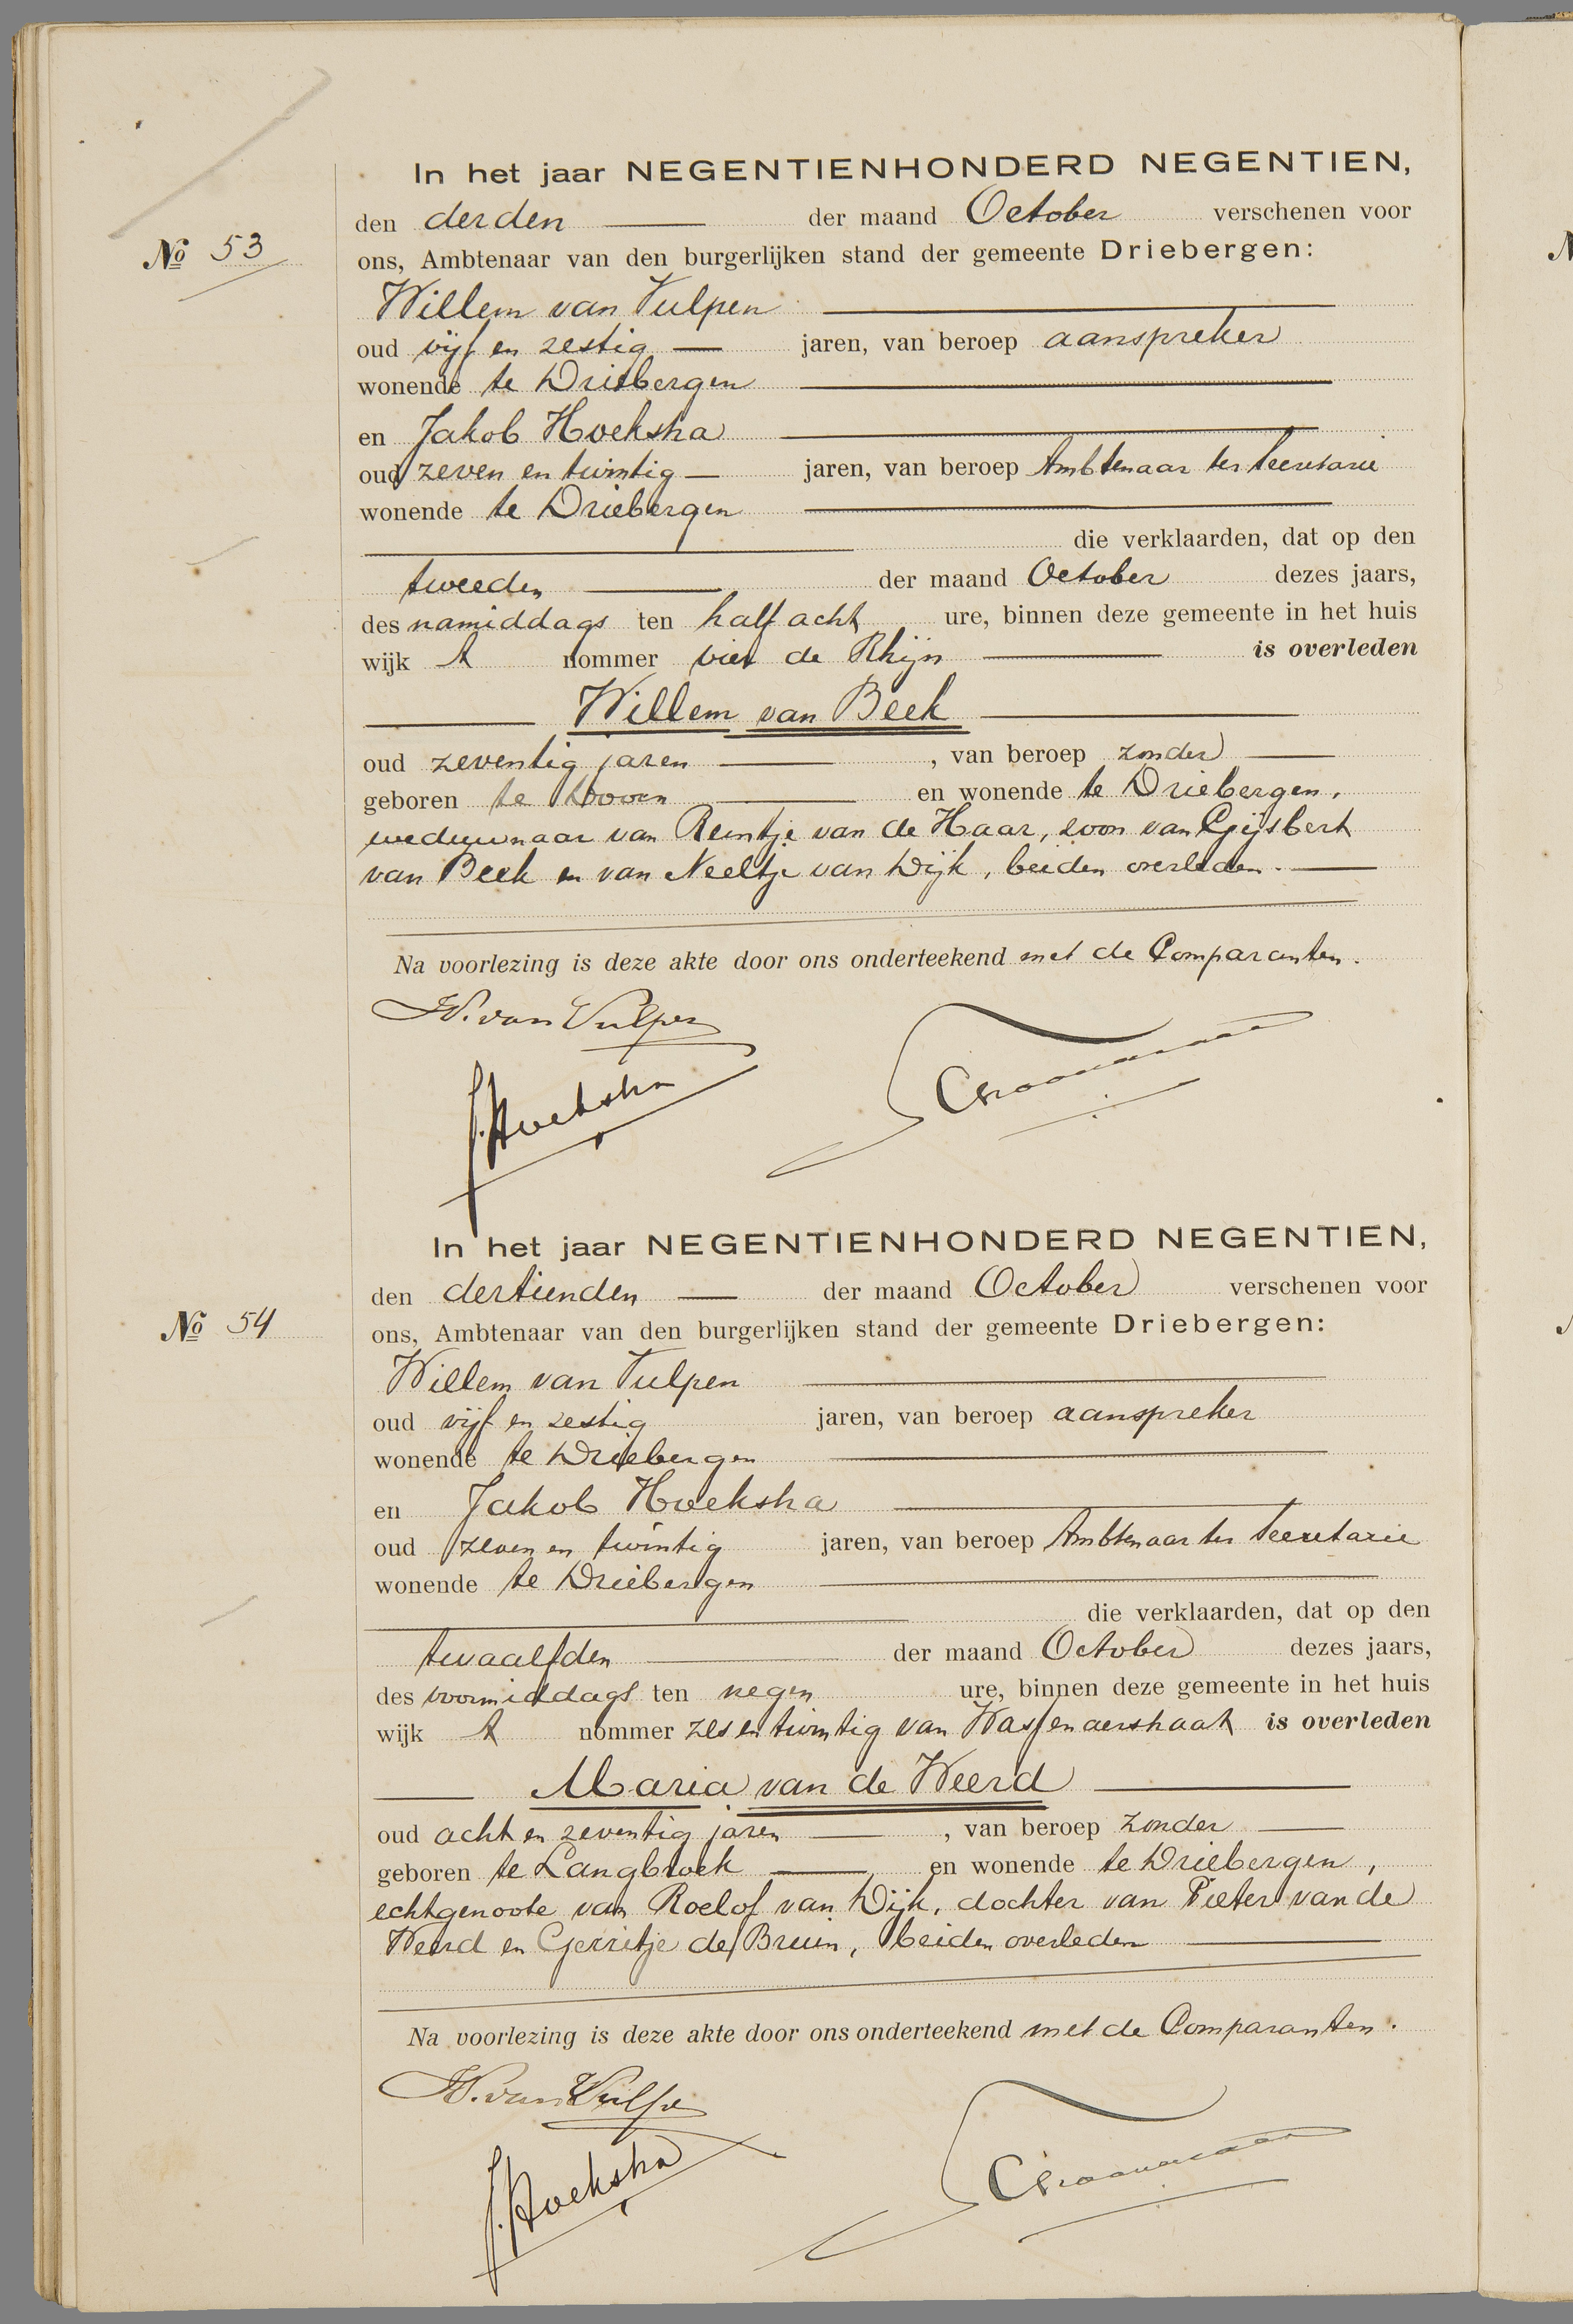 In het jaar NEGENTIENHONDERD NEGENTIEN,
den derden der maand October verschenen voor
№ 53
ons, Ambtenaar van den burgerlijken stand der gemeente Driebergen:
Willem van Vulpen
oud vijf en zestig jaren, van beroep aanspreker
wonende te Driebergen
en Jakob Hoekstra
oud zeven en twintig jaren, van beroep Ambtenaar ter Secretarie
wonende te Driebergen
die verklaarden, dat op den
tweeden der maand October dezes jaars,
des namiddags ten half acht ure, binnen deze gemeente in het huis
wijk A nommer vier de Rhijn is overleden
Willem van Beek
oud zeventig jaren, van beroep zonder
geboren te Doorn en wonende te Driebergen,
weduwnaar van Reintje van de Haar, zoon van Gijsbert
van Beek en van Neeltje van Dijk, beiden overleden.
Na voorlezing is deze akte door ons onderteekend met de Comparanten.
W. van Vulpen
J. Hoekstra
In het jaar NEGENTIENHONDERD NEGENTIEN,
den dertienden der maand October verschenen voor
№ 54
ons, Ambtenaar van den burgerlijken stand der gemeente Driebergen:
Willem van Vulpen
oud vijf en zestig jaren, van beroep aanspreker
wonende te Driebergen
en Jakob Hoekstra
oud zeven en twintig jaren, van beroep Ambtenaar ter Secretarie
wonende te Driebergen
die verklaarden, dat op den
twaalfden der maand October dezes jaars,
des voormiddags ten negen ure, binnen deze gemeente in het huis
wijk A nommer zes en twintig van Wassenaerstraat is overleden
Maria van de Weerd
oud acht en zeventig jaren, van beroep zonder
geboren te Langbroek en wonende te Driebergen,
echtgenoote van Roelof van Dijk, dochter van Pieter van de
Weerd en Gerritje de Bruin, beiden overleden
Na voorlezing is deze akte door ons onderteekend met de Comparanten.
W. van Vulpen
J. Hoekstra